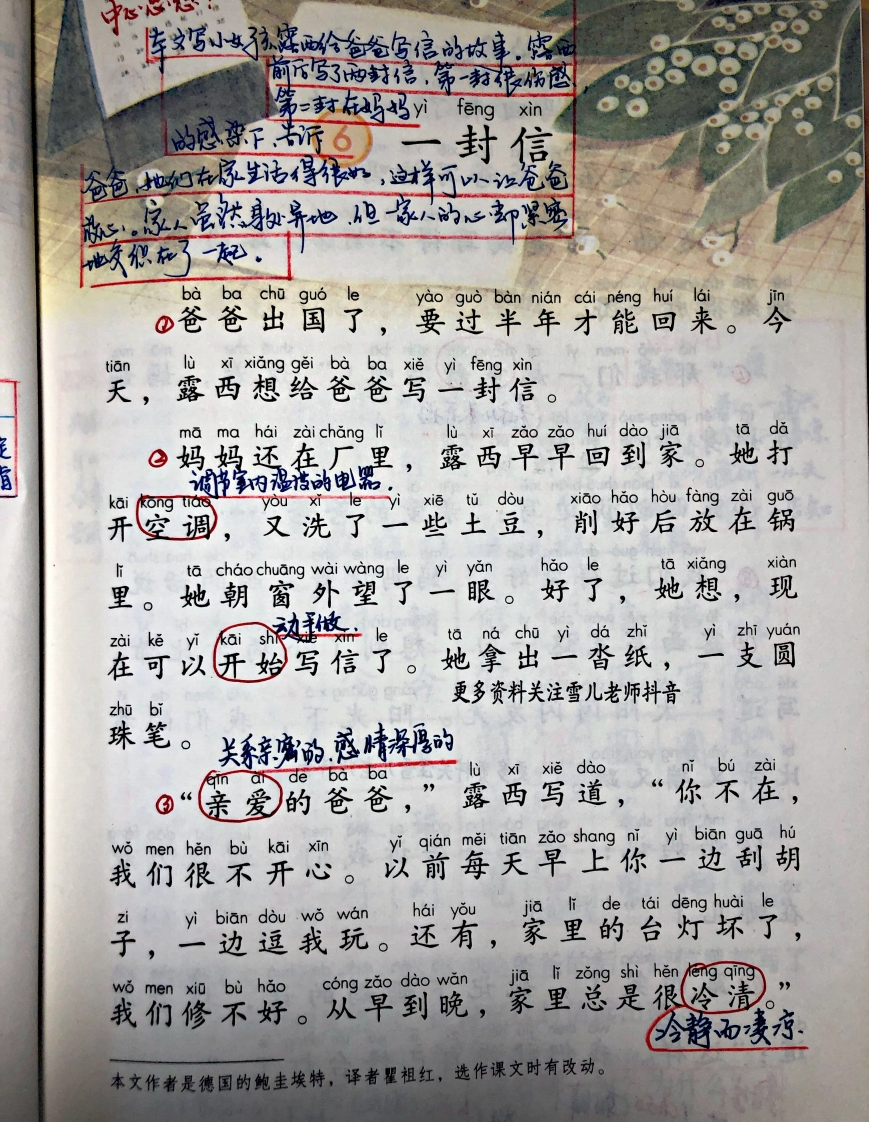 中心思想：
本文写小女孩露西给爸爸写信的故事。露西
前后写了两封信，第一封很伤感，
第二封在妈妈
yì fēng xìn
的感染下，告诉
6 一封信
爸爸，她们在家生活得很好，这样可以让爸爸
放心。家人虽然身处异地，但一家人的心却紧密
地交织在了一起。
bà ba chū guó le yào guò bàn nián cái néng huí lái jīn
①爸爸出国了，要过半年才能回来。今
tiān lù xī xiǎng gěi bà ba xiě yì fēng xìn
天，露西想给爸爸写一封信。
mā ma hái zài chǎng lǐ lù xī zǎo zǎo huí dào jiā tā dǎ
②妈妈还在厂里，露西早早回到家。她打
调节室内温度的电器.
kāi kōng tiáo yòu xǐ le yì xiē tǔ dòu xiāo hǎo hòu fàng zài guō
开空调，又洗了一些土豆，削好后放在锅
lǐ tā cháo chuāng wài wàng le yì yǎn hǎo le tā xiǎng xiàn
里。她朝窗外望了一眼。好了，她想，现
动手做.
zài kě yǐ kāi shǐ xiě xìn le tā ná chū yì dá zhǐ yì zhī yuán
在可以开始写信了。她拿出一沓纸，一支圆
更多资料关注雪儿老师抖音
zhū bǐ
珠笔。
关系亲密的、感情深厚的
qīn ài de bà ba lù xī xiě dào nǐ bú zài
③“亲爱的爸爸，”露西写道，“你不在，
wǒ men hěn bù kāi xīn yǐ qián měi tiān zǎo shang nǐ yì biān guā hú
我们很不开心。以前每天早上你一边刮胡
zi yì biān dòu wǒ wán hái yǒu jiā lǐ de tái dēng huài le
子，一边逗我玩。还有，家里的台灯坏了，
wǒ men xiū bù hǎo cóng zǎo dào wǎn jiā lǐ zǒng shì hěn lěng qīng
我们修不好。从早到晚，家里总是很冷清。”
冷静而凄凉.
本文作者是德国的鲍圭埃特，译者瞿祖红，选作课文时有改动。